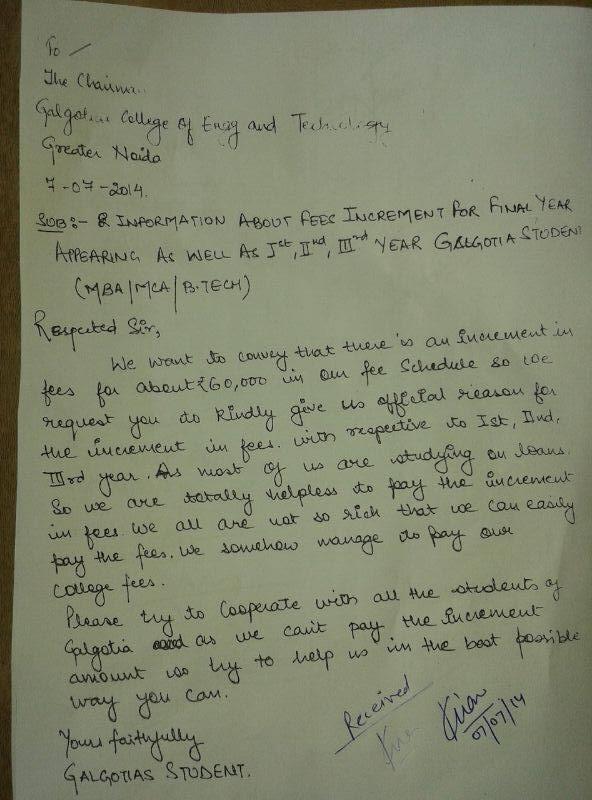 To
The Chairman
Galgotias College Of Engg and Technology
Greater Noida
7-07-2014.
SUB:- INFORMATION ABOUT FEES INCREMENT FOR FINAL YEAR
APPEARING AS WELL AS Ist, IInd, IIIrd YEAR GALGOTIA STUDENT
(MBA/MCA/B.TECH)
Respected Sir,
We want to convey that there is an increment in
fees for about ₹60,000 in our fee Schedule so we
request you to kindly give us official reason for
the increment in fees. with respective to Ist, IInd,
IIIrd year. As most of us are studying on loans.
So we are totally helpless to pay the increment
in fees. We all are not so rich that we can easily
pay the fees. We somehow manage to pay our
college fees.
Please try to Cooperate with all the students of
Galgotia as we can't pay the increment
amount so try to help us in the best possible
way you can.
Yours faithfully
GALGOTIAS STUDENT.
Received
07/07/14